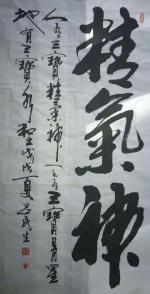 精氣神
人有三寶精氣神天有三寶日月星
地有三寶水火土戊戌夏